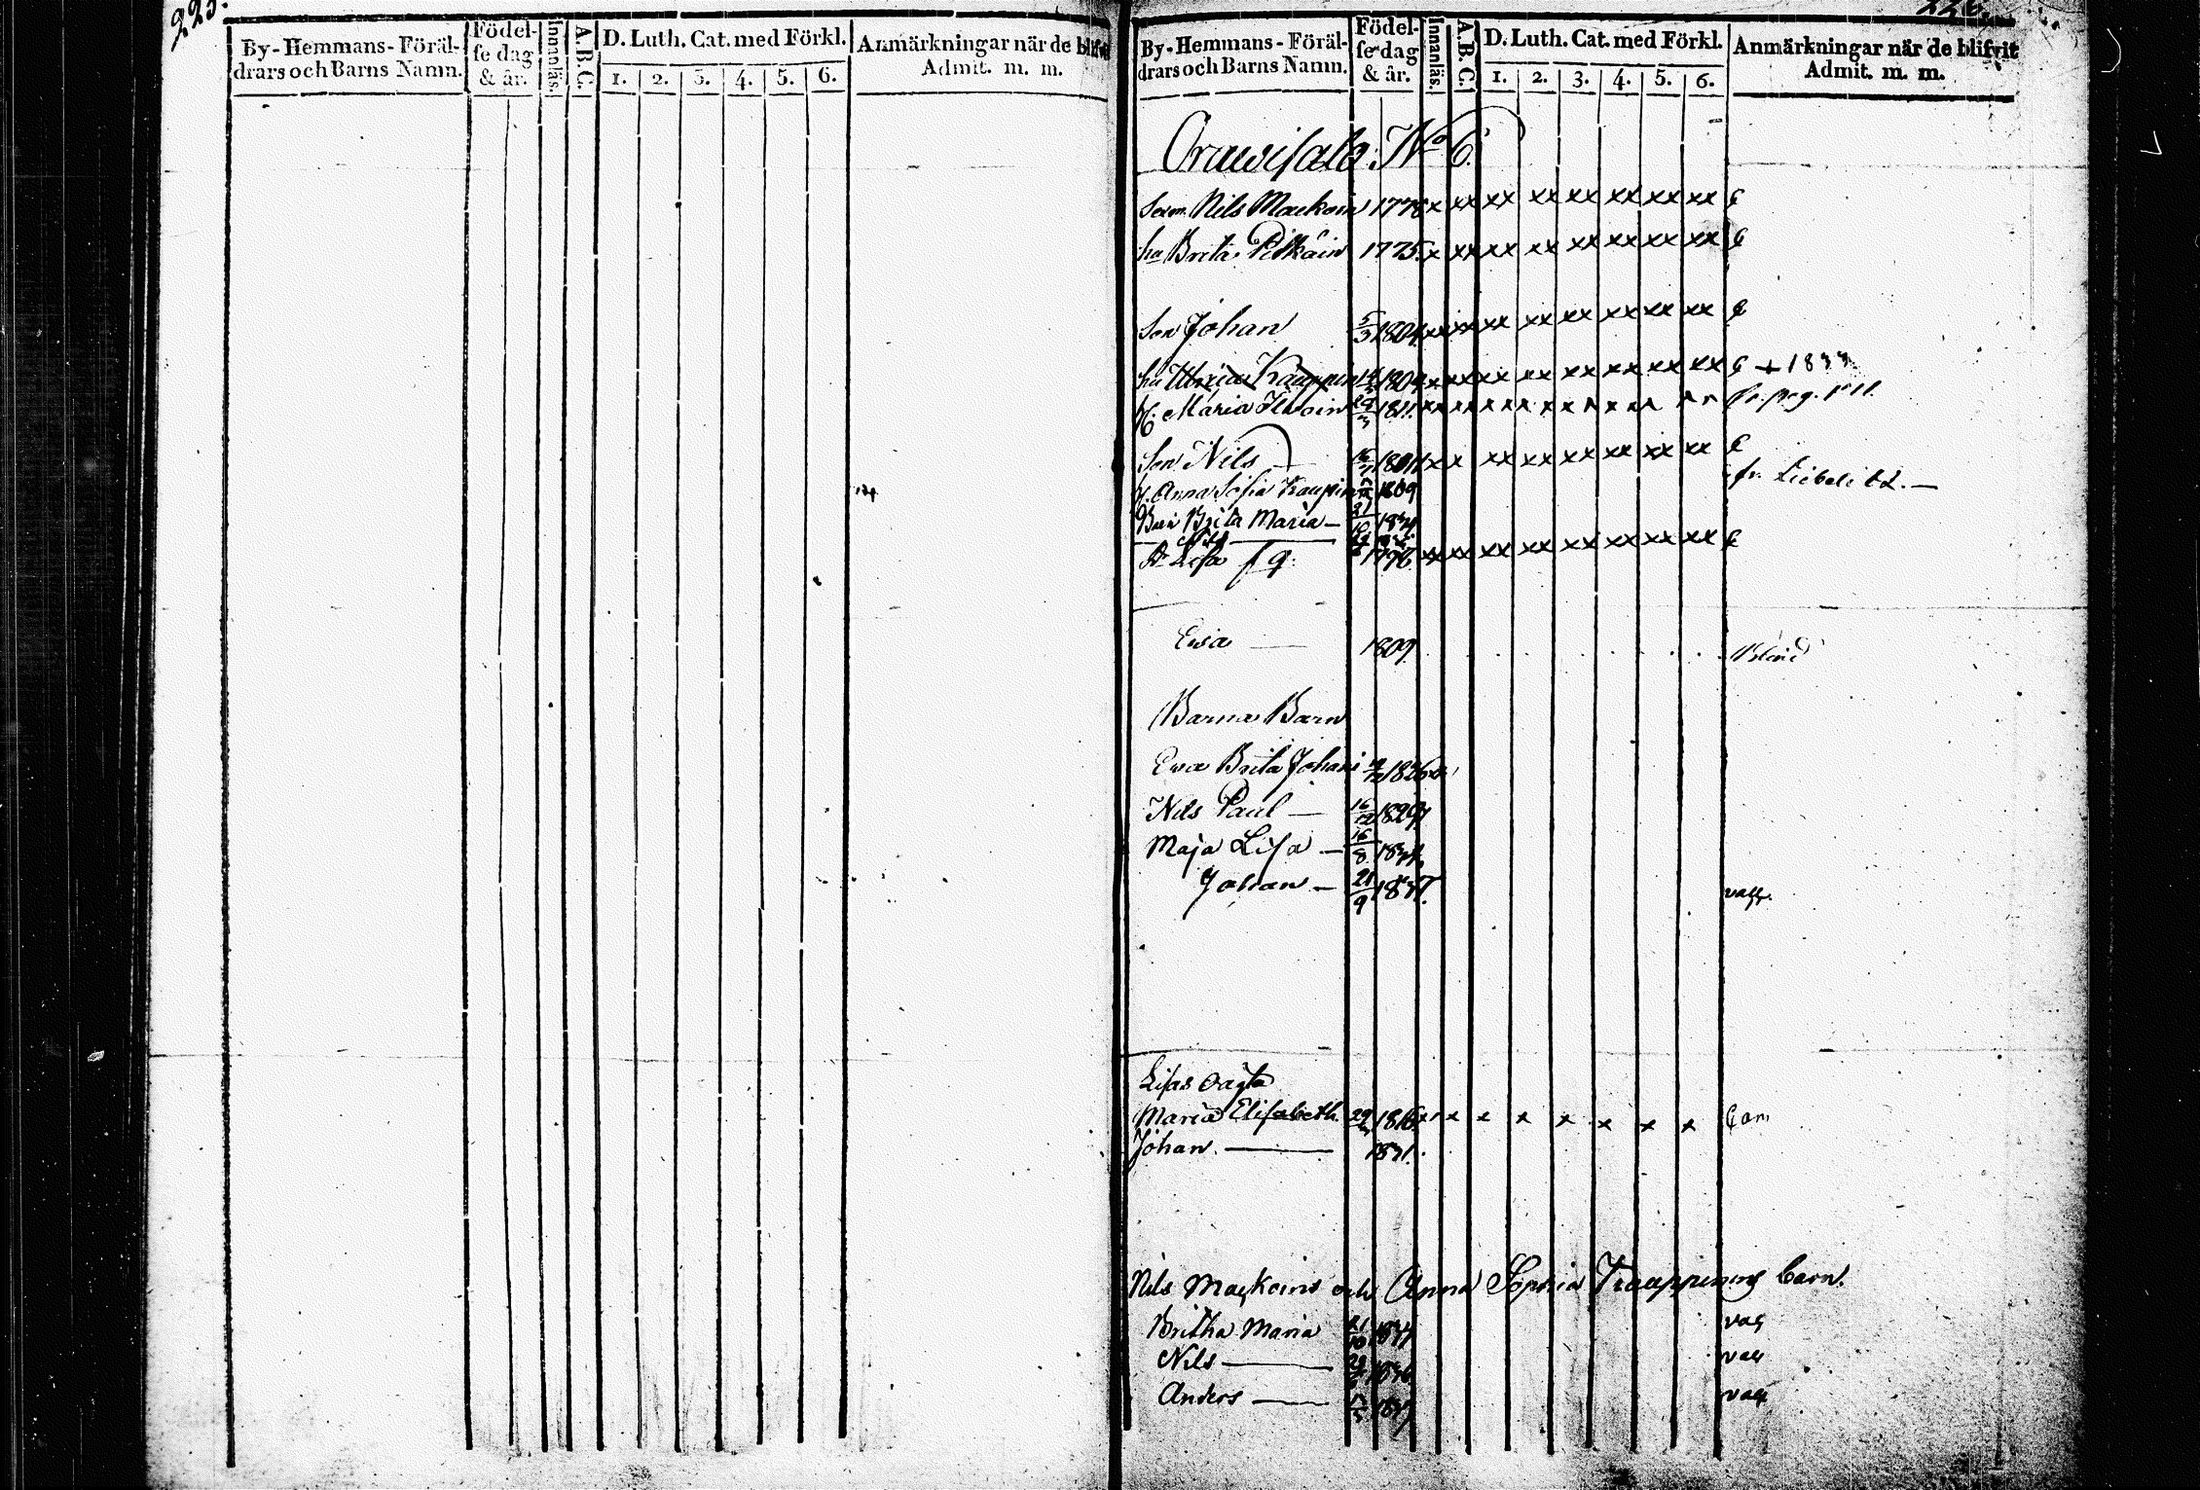 225.
By-Hemmans-Föräl-
drars och Barns Namn.
Födel-
se dag
& år.
Innanläs.
A.B.C.
D. Luth. Cat. med Förkl.
1. 2. 3. 4. 5. 6.
Anmärkningar när de blifvit
Admit. m. m.
226.
By-Hemmans-Föräl-
drars och Barns Namn.
Födel-
se dag
& år.
Innanläs.
A.B.C.
D. Luth. Cat. med Förkl.
1. 2. 3. 4. 5. 6.
Anmärkningar när de blifvit
Admit. m. m.
Orawisalo No 6.
Nils Mackoin 1776 x xx xx xx xx xx xx xx
hu Brita Pitkäin 1775. x xx xx xx xx xx xx xx
Son Johan 5/3 1804 xx xx xx xx xx xx xx xx
hu Ulrica Kauppin 1804 xx xx xx xx xx xx xx xx + 1833
H. Maria 29/3 1811. fr. pag.
Son Nils 1801 xx xx xx xx xx xx xx
H. Anna Sofia Kaupin 1809 fr. Libelitz. —
Barn Brita Maria — 21/10 1834
Nils
Dr Lisa 1796. xx xx xx xx xx xx xx xx
Ewa — 1809.
Barna Barn
Ewa Brita Johans 1826
Nils Paul — 16/12 1829
Maja Lisa — 16/8 1834
Johan — 21/9 1837. vacc.
Lisas oägta
Maria Elisabeth. 29 1816 x x x x x x x x
Johan. — 1831.
Nils Mackoins och Anna Sophia Kauppinens barn.
Britha Maria 21/10 1834 vac
Nils — 29 1836 vac
Anders — 1839 vac